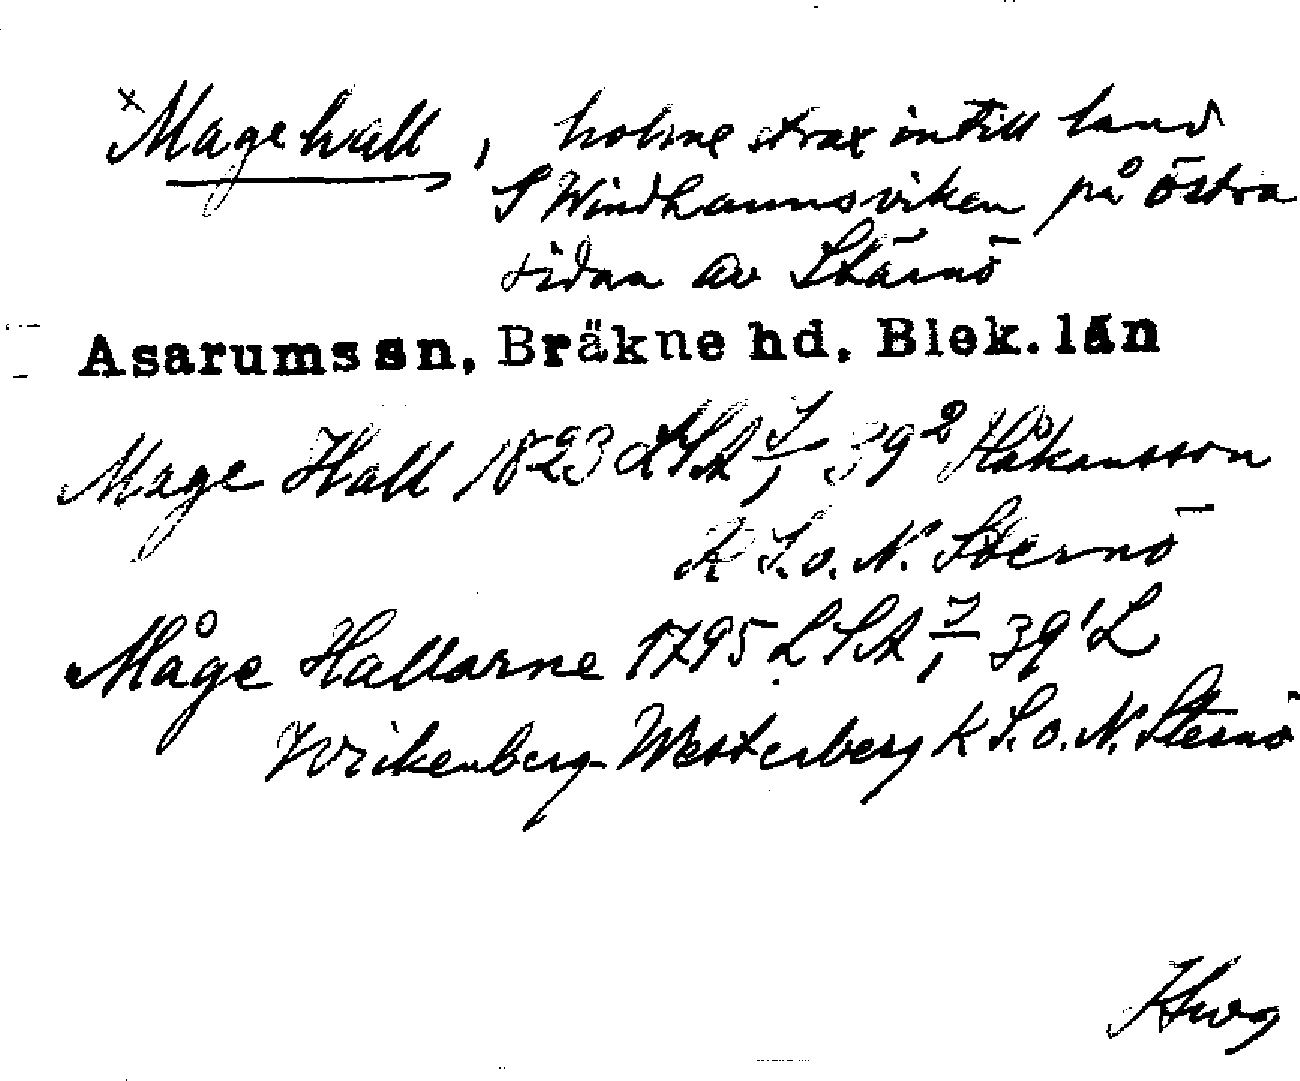 × Magehall, holme strax intill land
S Windhamnsviken på östra
sidan av Stärnö
Asarums sn, Bräkne hd, Blek. län
Mage Hall 1823 LSA 39² Håkansson
K S. o. N. Sternö
Måge Hallarne 1795 LSA 39¹ L
Wikenberg-Westerberg K S. o. N. Sternö